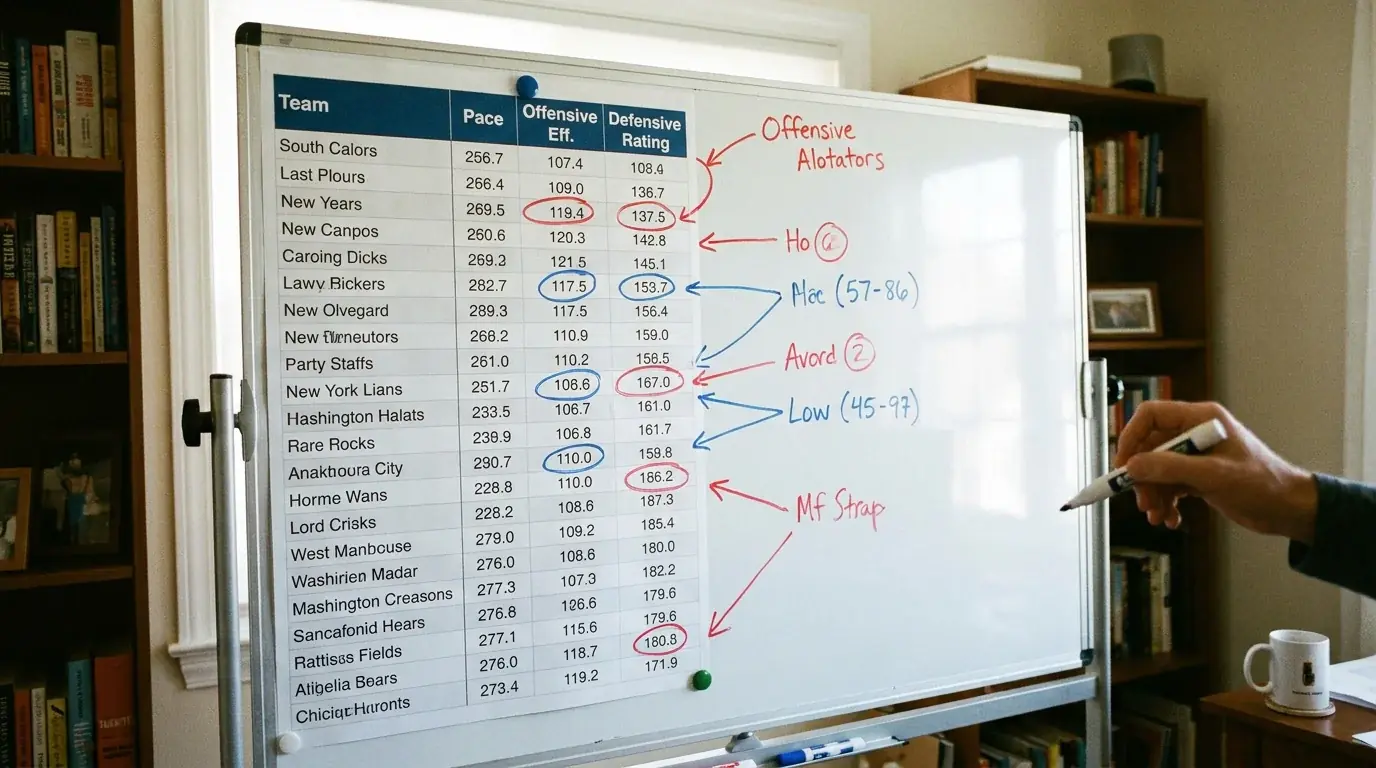 Team Pace Offensive Eff. Defensive Rating
South Calors 256.7 107.4 108.4
Last Plours 266.4 109.0 136.7
New Years 269.5 119.4 137.5
New Canpos 260.6 120.3 142.8
Caroing Dicks 269.3 121.5 145.1
Lawy Bickers 282.7 117.5 153.7
New Olvegard 289.3 117.5 156.4
New 268.2 110.9 159.0
Party Staffs 261.0 110.2 158.5
New York Lians 251.7 106.6 167.0
Hashington Halats 233.5 106.7 161.0
Rare Rocks 239.9 106.8 161.7
Anakboura City 290.7 110.0 159.8
Horme Wans 228.8 110.0 186.2
Lord Crisks 228.2 108.6 187.3
West Manbouse 279.0 109.2 185.4
Washirien Madar 276.0 108.6 180.0
Mashington Creasons 277.3 107.3 182.2
Sancafonid Hears 276.8 126.6 179.6
Rattisss Fields 277.1 115.6 179.6
Bears 276.0 118.7 180.8
273.4 119.2 171.9
Offensive
Alotators
Ho
(57-86)
Avord 2
Low (45-97)
Mf Strap